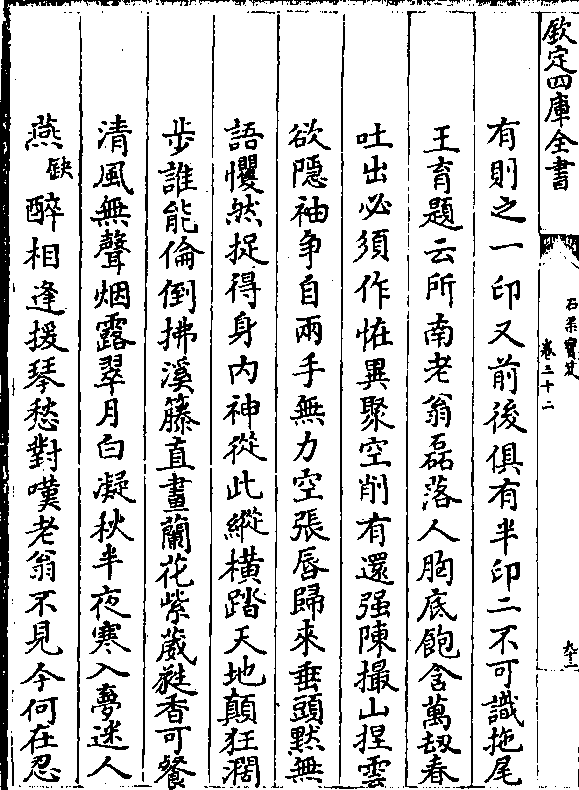 欽定四庫全書
石渠寶笈
卷三十二
有則之一印又前後俱有半印二不可識拖尾
王育題云所南老翁磊落人胸底飽含萬刼春
吐出必須作恠異聚空削有還强陳撮山捏雲
欲隱袖争自兩手無力空張唇歸來垂頭黙無
語懼然捉得身内神從此縱横踏天地顛狂濶
步誰能倫倒拂溪籐直畫蘭花紫葳蕤香可餐
清風無聲烟露翠月白凝秋半夜寒入夢迷人
燕缺醉相逢援琴愁對嘆老翁不見今何在忍